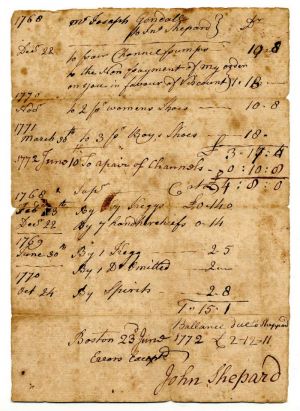 1768 Mr Joseph Gendall
To Jno Shepard Dr
Decr 22 To pair Channel pumps 10-8
to the Non payment of my order
on you in favour of 18-
1770
To 2 pr womens Shoes - 10-8
1771
March 30th To 3 pr Boys Shoes - 18-
3-17-4
1772 June 10 To a pair of Channels - 0:10:8
£4:8:0
1768 Supr
By Keggs £0-14-0
Decr 22 By 7 handkercheifs 0-14
1769
June 30th By 1 Kegg 2-5
By 1 Do omitted 2-
1770
Oct 24 By Spirits - 2-8
1-15-1
Ballance due to Sheppard
Boston 23d June 1772 £2-12-11
Errors Excepd
John Shepard